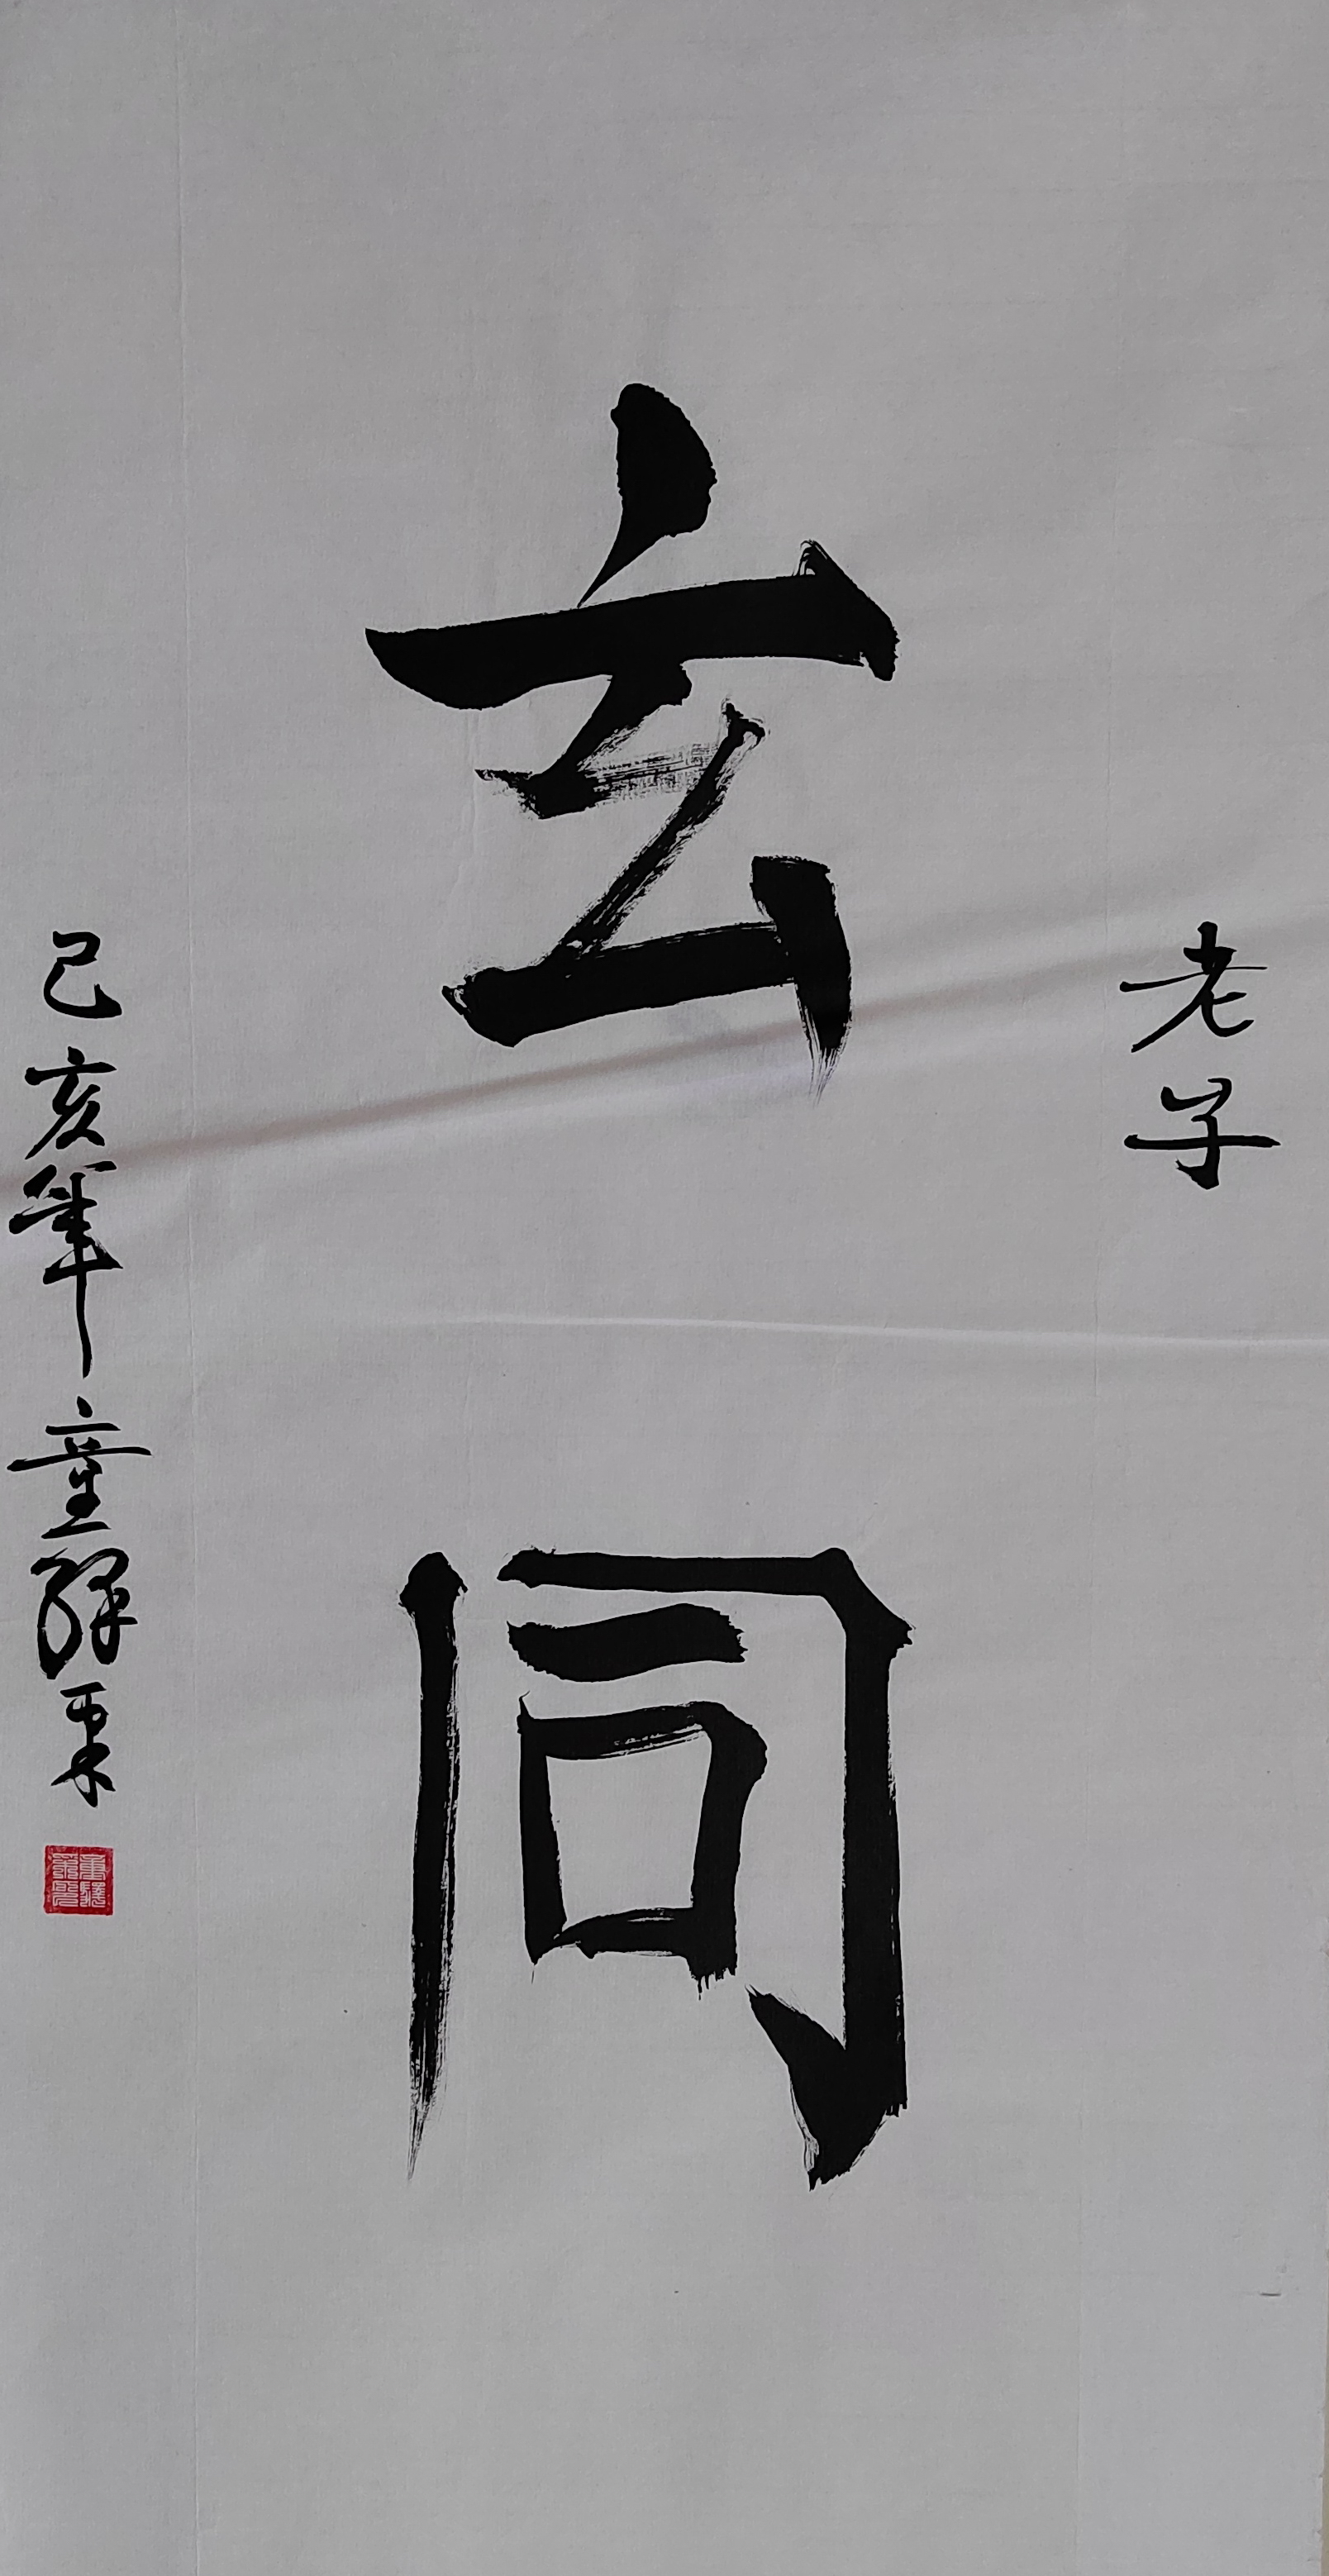 老子
玄同
己亥年童驛棐